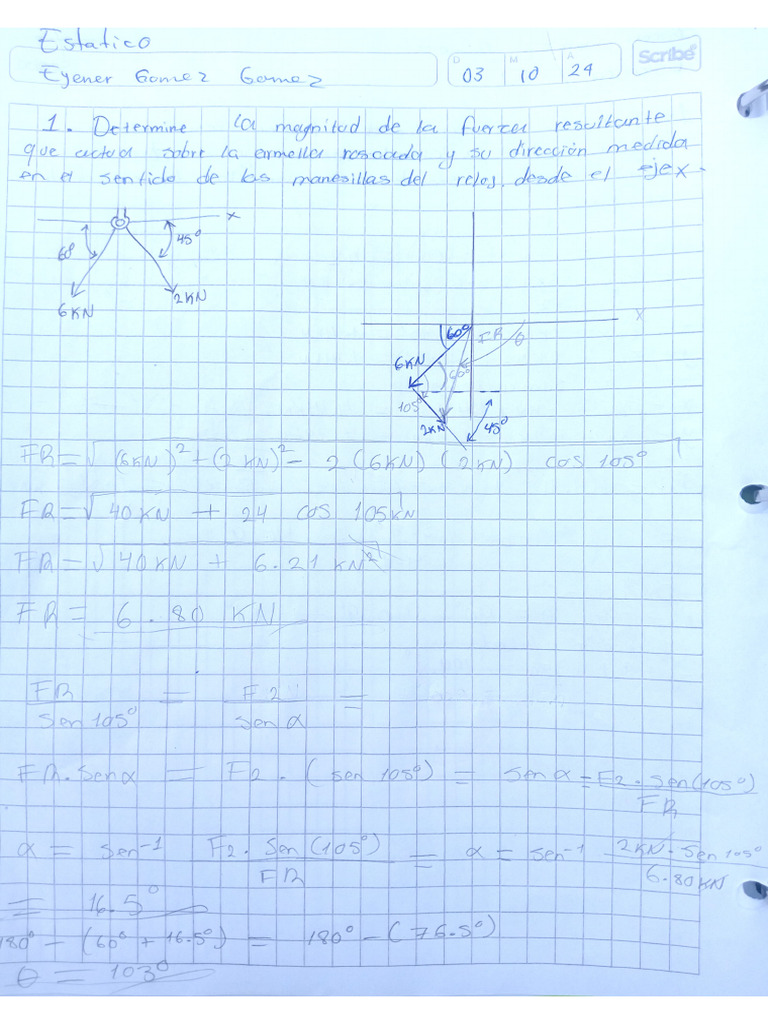 Estatico
Eyener Gomez Gomez
D 03 M 10 A 24
Scribe
1. Determine la magnitud de la fuerza resultante
que actua sobre la armella roscada y su dirección medida
en el sentido de las manesillas del reloj. desde el eje x.
x
60
45°
6KN
2KN
X
60°
FR θ
6KN
60°
105°
2KN
45°
FR = √(6KN)² + (2KN)² - 2 (6KN) (2KN) cos 105°
FR = √40KN + 24 cos 105KN
FR = √40KN + 6.21 KN²
FR = 6.80 KN
FR / sen 105° = F2 / sen α =
FR. Sen α = F2. (sen 105°) = sen α = F2. sen(105°) / FR
α = sen⁻¹ F2. Sen (105°) / FR = α = sen⁻¹ 2KN. sen 105° / 6.80KN
= 16.5°
180° - (60° + 16.5°) = 180° - (76.5°)
θ = 103°